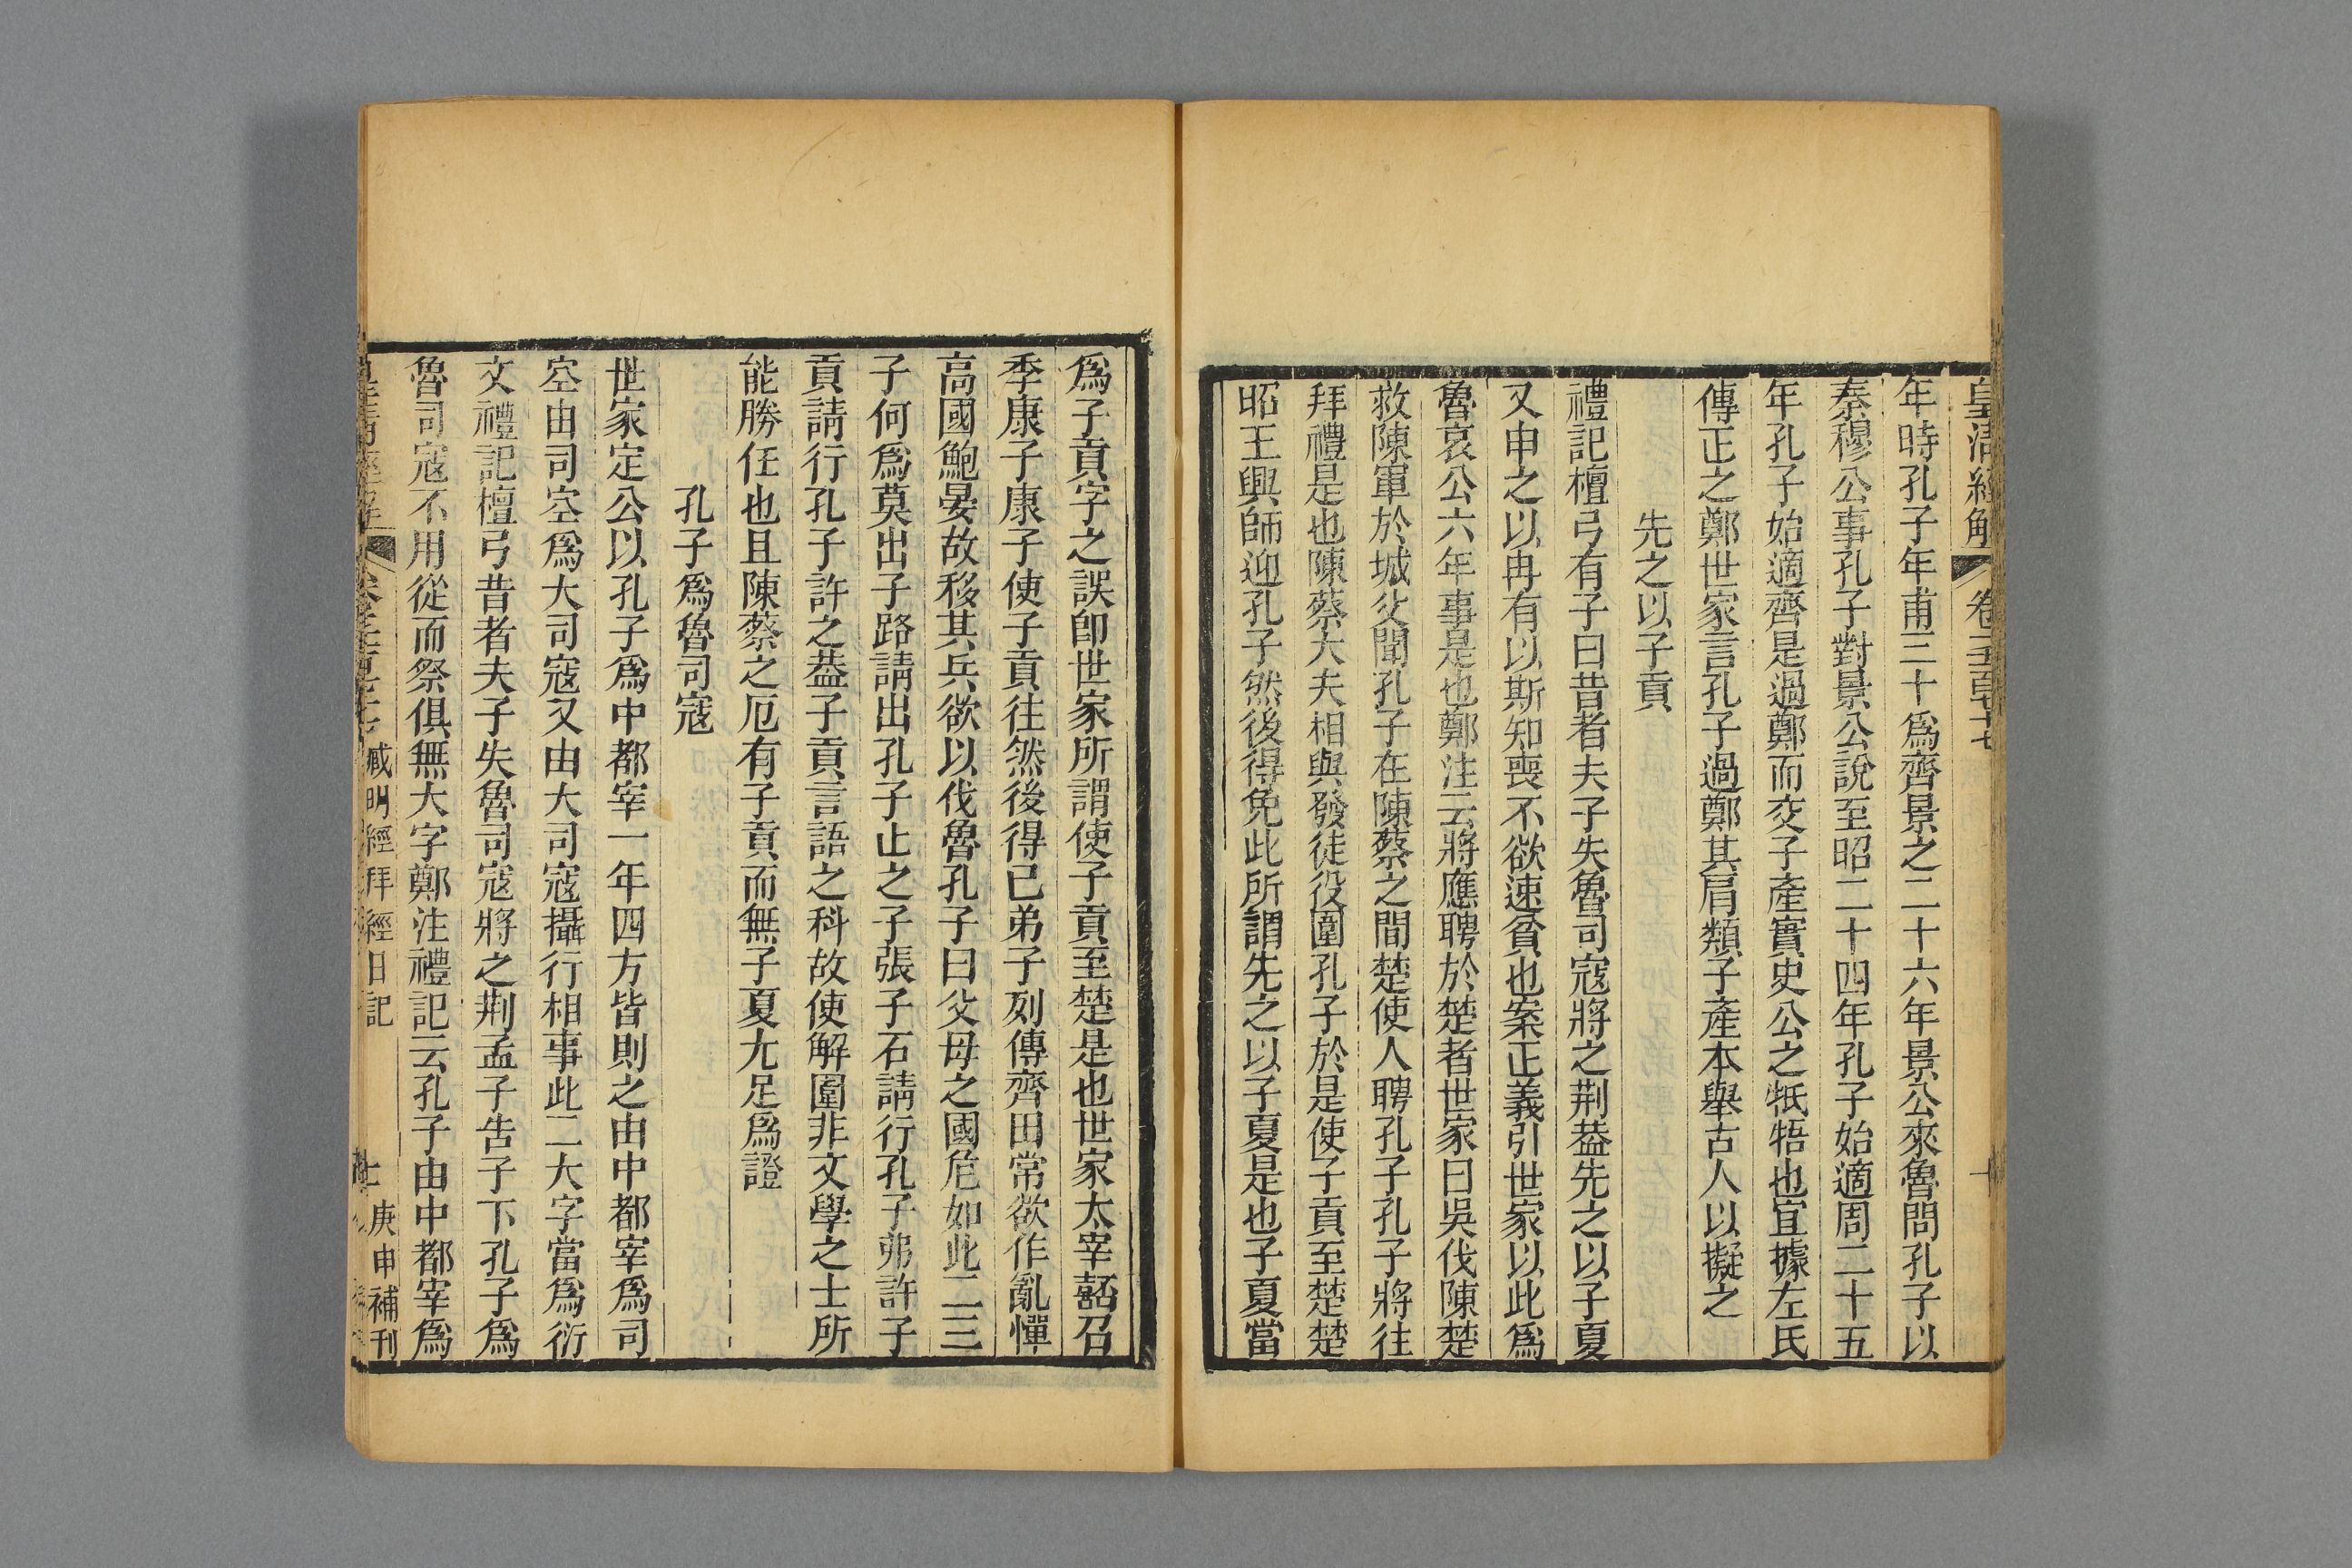 皇清經解 卷一千一百七十七 十
年時孔子年甫三十爲齊景之二十六年景公來魯問孔子以
秦穆公事孔子對景公說至昭二十四年孔子始適周二十五
年孔子始適齊是過鄭而交子產實史公之牴牾也宜據左氏
傳正之鄭世家言孔子過鄭其肩類子產本舉古人以擬之
先之以子貢
禮記檀弓有子曰昔者夫子失魯司寇將之荆葢先之以子夏
又申之以冉有以斯知喪不欲速貧也案正義引世家以此爲
魯哀公六年事是也鄭注云將應聘於楚者世家曰吳伐陳楚
救陳軍於城父聞孔子在陳蔡之間楚使人聘孔子孔子將往
拜禮是也陳蔡大夫相與發徒役圍孔子於是使子貢至楚楚
昭王興師迎孔子然後得免此所謂先之以子夏是也子夏當
爲子貢字之誤卽世家所謂使子貢至楚是也世家太宰嚭召
季康子康子使子貢往然後得已弟子列傳齊田常欲作亂憚
高國鮑晏故移其兵欲以伐魯孔子曰父母之國危如此二三
子何爲莫出子路請出孔子止之子張子石請行孔子弗許子
貢請行孔子許之葢子貢言語之科故使解圍非文學之士所
能勝任也且陳蔡之厄有子貢而無子夏尢足爲證
孔子爲魯司寇
世家定公以孔子爲中都宰一年四方皆則之由中都宰爲司
空由司空爲大司寇又由大司寇攝行相事此二大字當爲衍
文禮記檀弓昔者夫子失魯司寇將之荆孟子告子下孔子爲
魯司寇不用從而祭俱無大字鄭注禮記云孔子由中都宰爲
臧明經拜經日記 庚申補刊